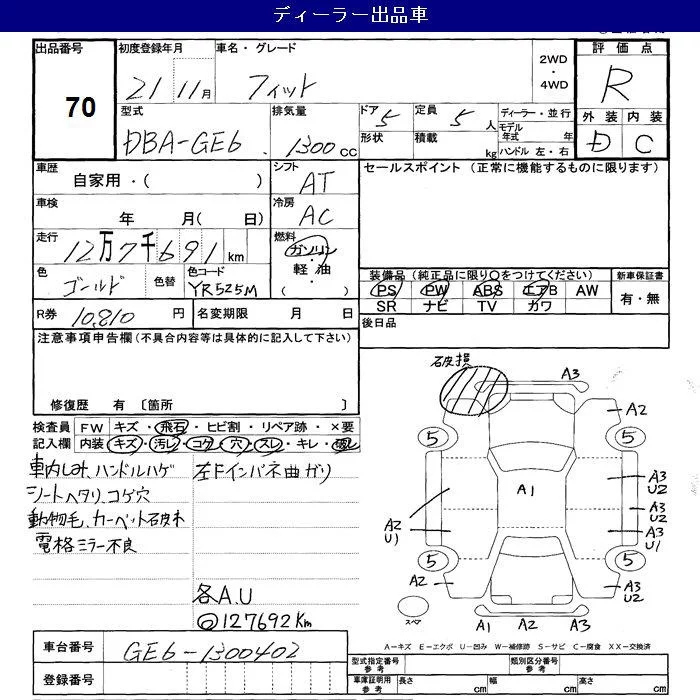 ディーラー出品車
出品番号 70
初度登録年月 21 11月
車名・グレード フィット
2WD・4WD
評価点 R
外装 内装
D C
型式 DBA-GE6
排気量 1300cc
ドア 5
形状
定員 5人
積載 kg
ディーラー・並行
モデル年式 年
ハンドル 左・右
車歴 自家用・( )
シフト AT
セールスポイント (正常に機能するものに限ります)
車検 年 月( 日)
冷房 AC
走行 12万7千691km
燃料 ガソリン・軽油・( )
色 ゴールド
色替
色コード YR525M
装備品 (純正品に限り○をつけてください)
新車保証書 有・無
PS PW ABS エアB AW
SR ナビ TV カワ
R券 10,810 円
名変期限 月 日
後日品
注意事項申告欄 (不具合内容等は具体的に記入して下さい)
修復歴 有 〔箇所 〕
検査員記入欄
FW キズ・飛石・ヒビ割・リペア跡・×要
内装 キズ・汚レ・コゲ・穴・スレ・キレ・破レ
車内しみ、ハンドルハゲ
シートヘタリ、コゲ穴
動物毛、カーペット破れ
電格ミラー不良
左Fインパネ曲ガリ
各A.U
◎127692Km
破損
A3
A2
5 5
A1
A3
U2
A3
U2
A2
U1
A3
U1
5 5
A2
A3
U2
スペア
A1 A2 A3
A−キズ E−エクボ U−凹み W−補修跡 S−サビ C−腐食 XX−交換済
車台番号 GE6-1300402
登録番号
型式指定番号 参考
類別区分番号 参考
車庫証明用 参考
長さ cm 幅 cm 高さ cm